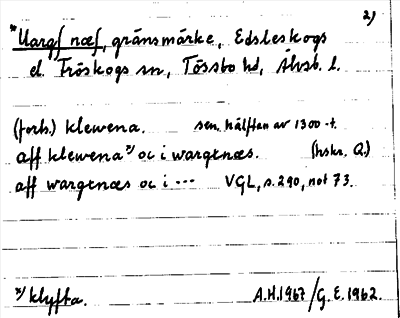 2)
*Uargſ næſ, gränsmärke, Edsleskogs
el. Fröskogs sn, Tössbo hd, Älvsb. l.
(forts.) klewena. sen. hälften av 1300-t.
aff klewena x) oc i wargenæs. (hskr. Q.)
aff wargenæs oc i ... VGL, s. 290, not 73.
x) klyfta. A.H. 1967/G.E. 1962.